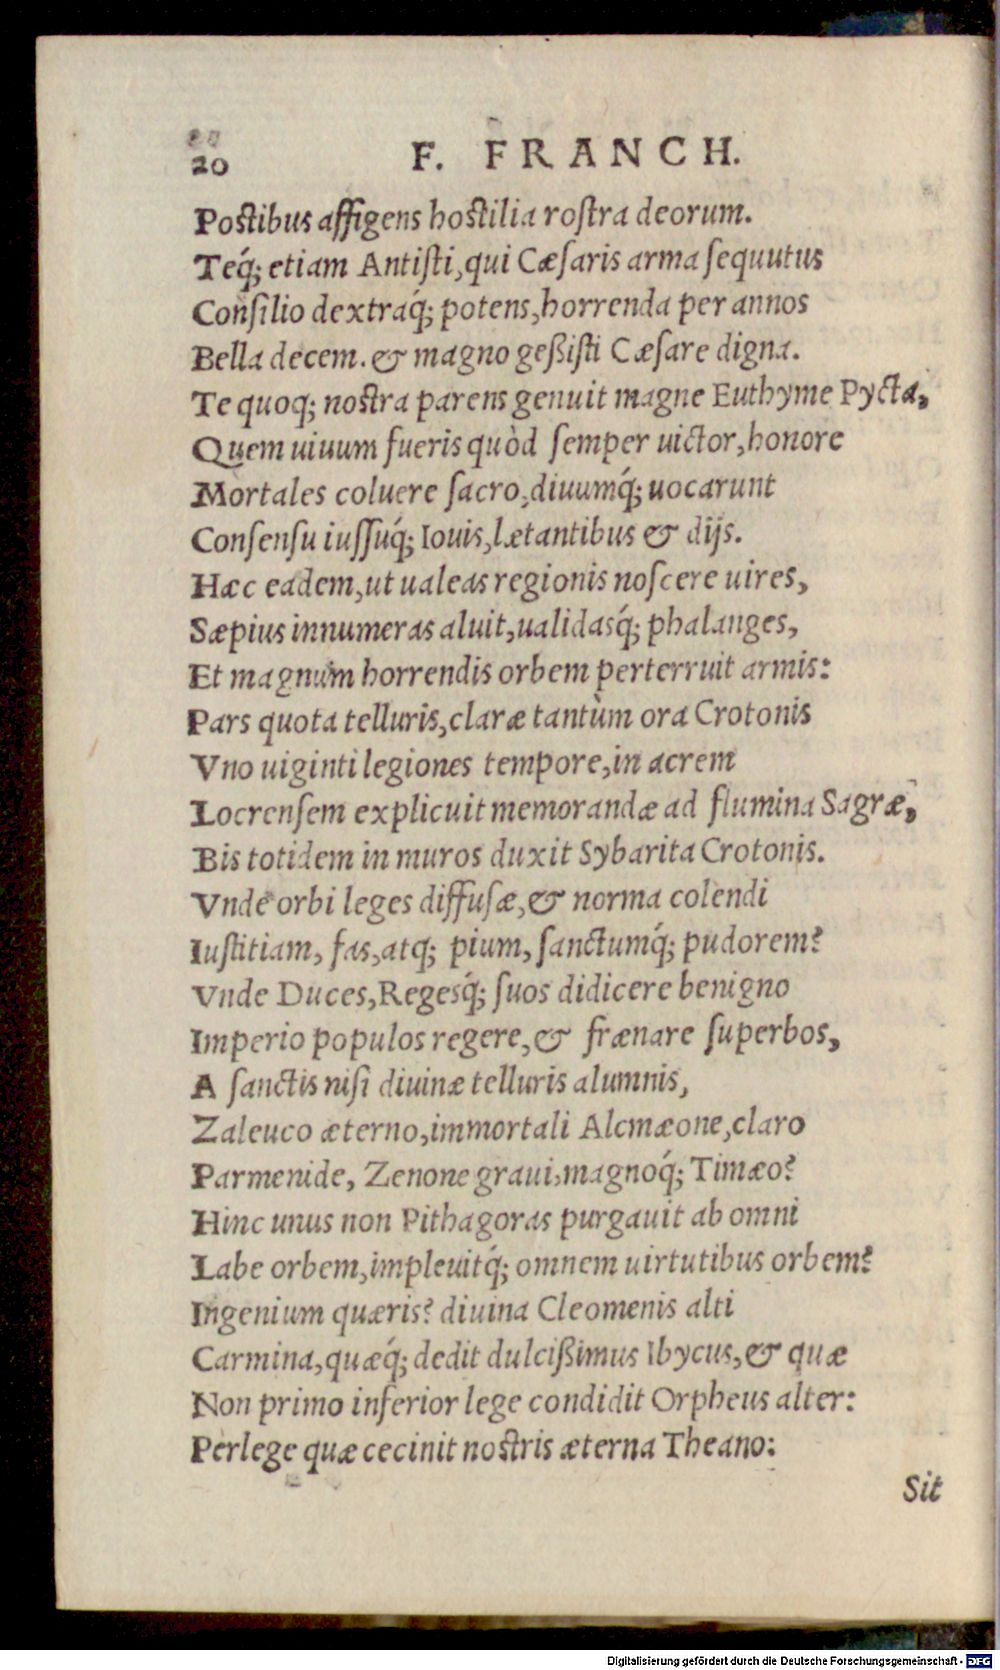 20 F. FRANCH.
Postibus affigens hostilia roſtra deorum.
Teq́; etiam Antiſti, qui Cæſaris arma ſequutus
Conſilio dextraq́; potens, horrenda per annos
Bella decem. & magno geßiſti Cæſare digna.
Te quoq; nostra parens genuit magne Euthyme Pycta,
Quem uiuum fueris quòd ſemper uictor, honore
Mortales coluere ſacro, diuumq́; uocarunt
Conſenſu iuſſuq́; Iouis, lætantibus & dijs.
Hæc eadem, ut ualeas regionis noſcere uires,
Sæpius innumeras aluit, ualidasq́; phalanges,
Et magnum horrendis orbem perterruit armis:
Pars quota telluris, claræ tantùm ora Crotonis
Vno uiginti legiones tempore, in acrem
Locrenſem explicuit memorandæ ad flumina Sagræ,
Bis totidem in muros duxit Sybarita Crotonis.
Vnde orbi leges diffuſæ, & norma colendi
Iuſtitiam, fas, atq; pium, ſanctumq́; pudorem?
Vnde Duces, Regesq́; ſuos didicere benigno
Imperio populos regere, & frænare ſuperbos,
A ſanctis niſi diuinæ telluris alumnis,
Zaleuco æterno, immortali Alcmæone, claro
Parmenide, Zenone graui, magnoq́; Timæo?
Hinc unus non Pithagoras purgauit ab omni
Labe orbem, impleuitq́; omnem uirtutibus orbem?
Ingenium quæris? diuina Cleomenis alti
Carmina, quæq́; dedit dulcißimus Ibycus, & quæ
Non primo inferior lege condidit Orpheus alter:
Perlege quæ cecinit nostris æterna Theano:
Sit
Digitalisierung gefördert durch die Deutsche Forschungsgemeinschaft - DFG